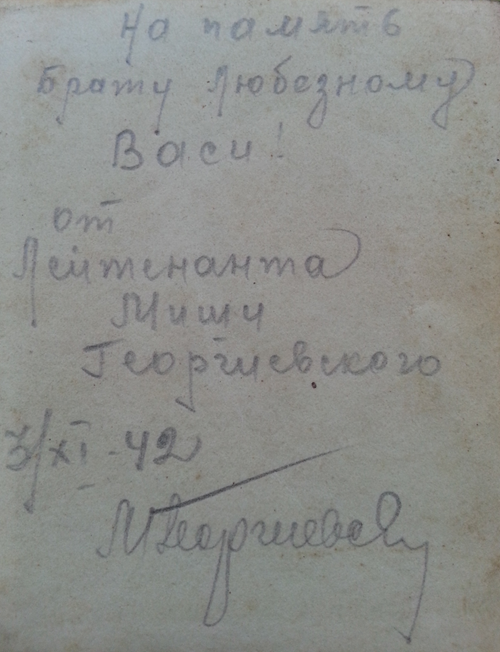 На память
Брату Любезному
Васи!
от
Лейтенанта
Миши
Георгиевского
3/XI-42
МГеоргиевский